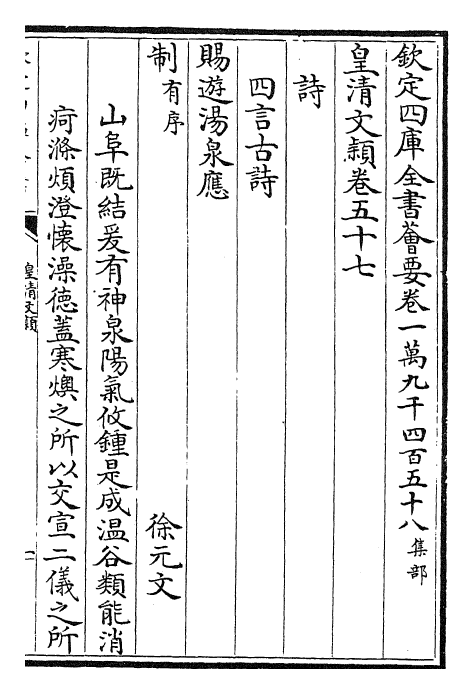 欽定四庫全書薈要卷一萬九千四百五十八集部
皇清文頴卷五十七
詩
四言古詩
賜遊湯泉應
制有序
徐元文
山阜既結爰有神泉陽氣攸鍾是成温谷類能消
疴滌煩澄懐澡徳蓋寒燠之所以交宣二儀之所
皇清文頴